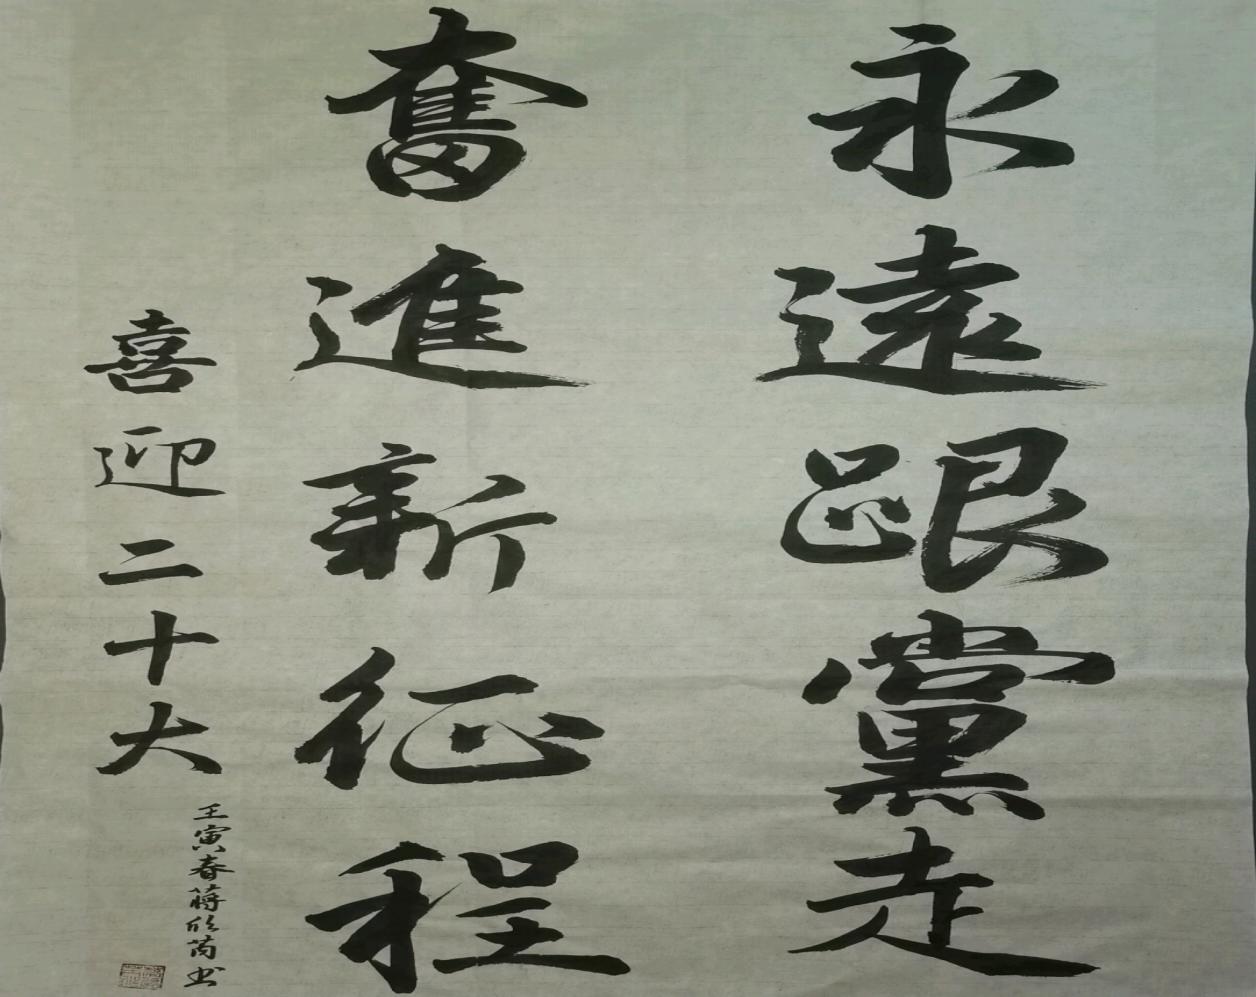 永遠跟黨走
奮進新征程
喜迎二十大
壬寅春蔣欣芮书